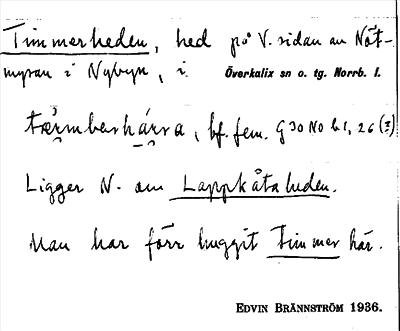 Timmerheden, hed på V. sidan av Nöt-
myran i Nybyn, i Överkalix sn o. tg. Norrb. l.
bf. fem. G 30 No b 1, 26
Ligger N. om Lappkåtaheden.
Man har förr huggit timmer här.
EDVIN BRÄNNSTRÖM 1936.